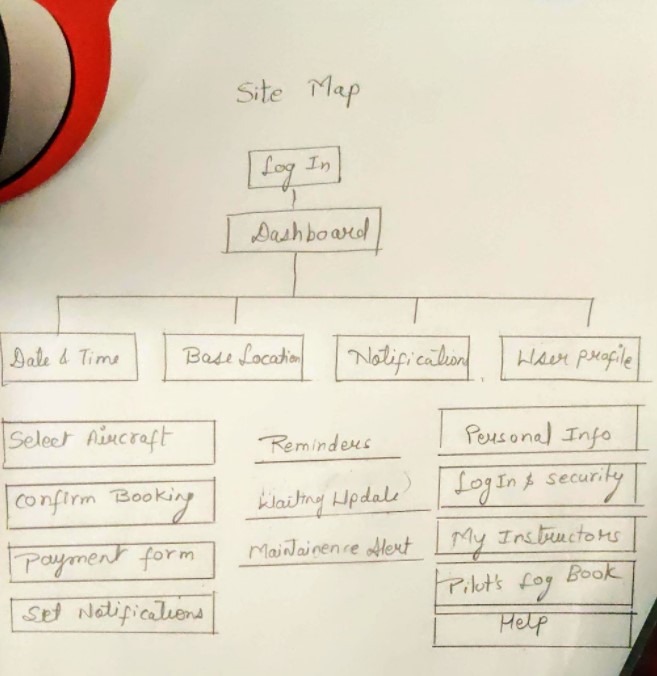 Site Map
Log In
Dashboard
Date & Time
Base Location
Notification
User profile
Select Aircraft
Confirm Booking
Payment form
Set Notifications
Reminders
Waiting Update
Maintainence Alert
Personal Info
Log In & security
My Instructors
Pilot's Log Book
Help